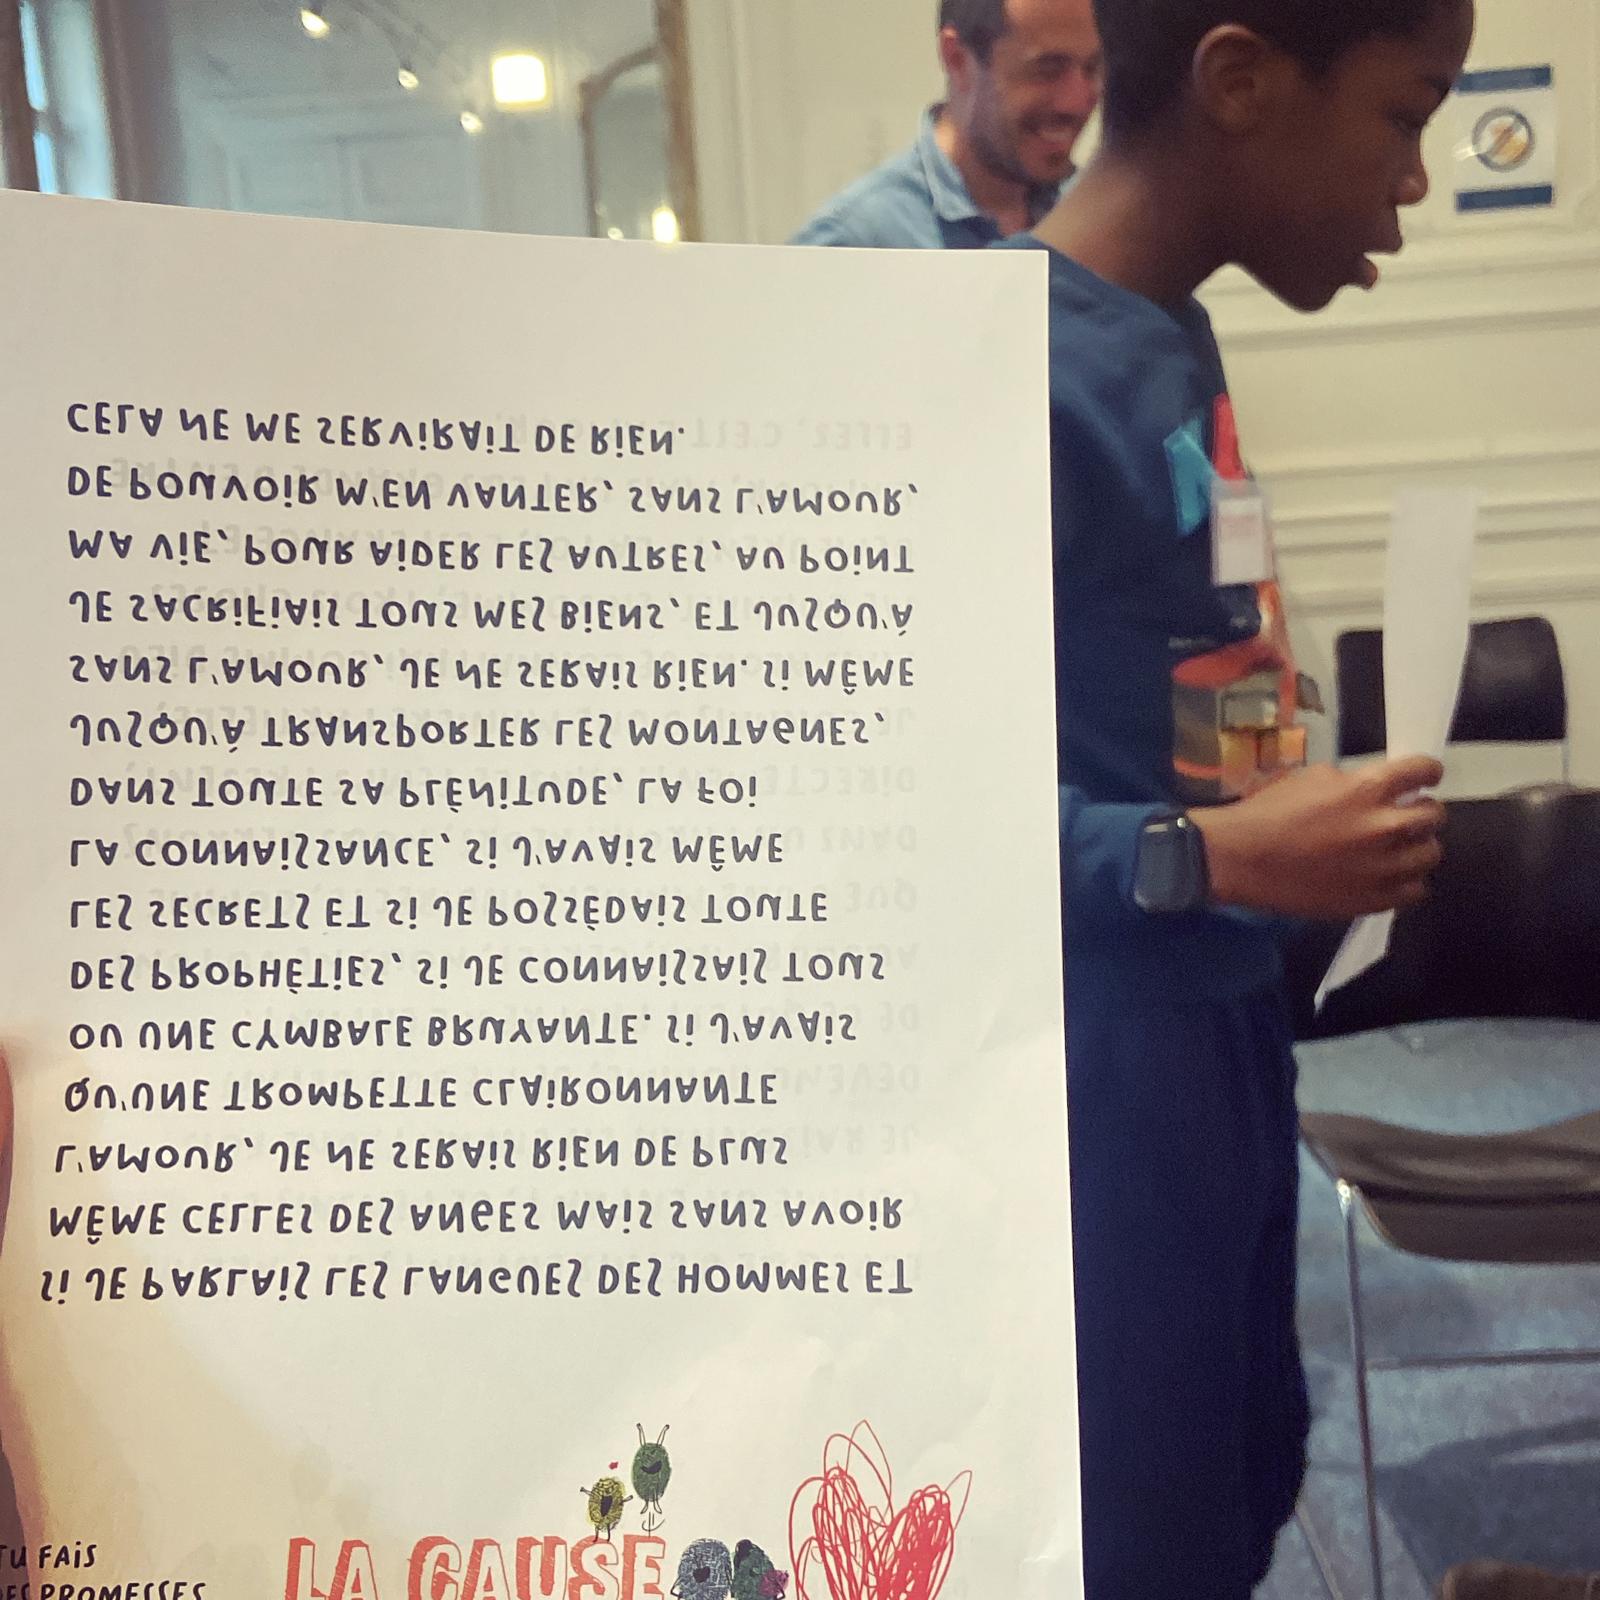 Si JE PARLAiS LES LANGUES DES HOMMES ET
MÊME CELLES DES ANGES MAiS SANS AVOiR
L'AMOUR, JE NE SERAiS RiEN DE PLUS
QU'UNE TROMPETTE CLAiRONNANTE
OU UNE CYMBALE BRUYANTE. Si J'AVAiS
DES PROPHÉTiES, Si JE CONNAiSSAiS TOUS
LES SECRETS ET Si JE POSSÉDAiS TOUTE
LA CONNAiSSANCE, Si J'AVAiS MÊME
DANS TOUTE SA PLÉNiTUDE, LA FOi
JUSQU'À TRANSPORTER LES MONTAGNES,
SANS L'AMOUR, JE NE SERAiS RiEN. Si MÊME
JE SACRiFiAiS TOUS MES BiENS, ET JUSQU'À
MA ViE, POUR AiDER LES AUTRES, AU POiNT
DE POUVOiR M'EN VANTER, SANS L'AMOUR,
CELA NE ME SERViRAiT DE RiEN.
TU FAiS
DES PROMESSES
LA CAUSE